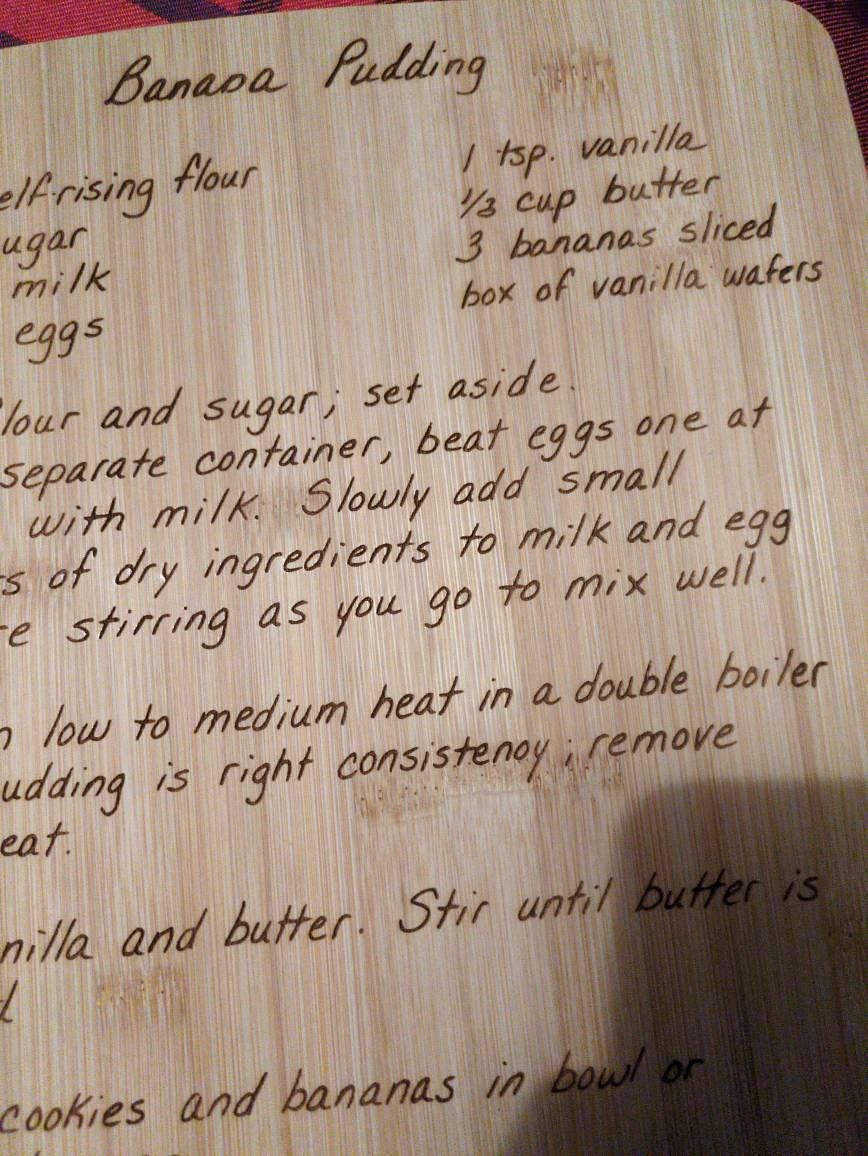 Banana Pudding
elf-rising flour
ugar
milk
eggs
1 tsp. vanilla
1/3 cup butter
3 bananas sliced
box of vanilla wafers
lour and sugar; set aside.
separate container, beat eggs one at
with milk. Slowly add small
s of dry ingredients to milk and egg
e stirring as you go to mix well.
n low to medium heat in a double boiler
udding is right consistency; remove
eat.
nilla and butter. Stir until butter is
d
cookies and bananas in bowl or